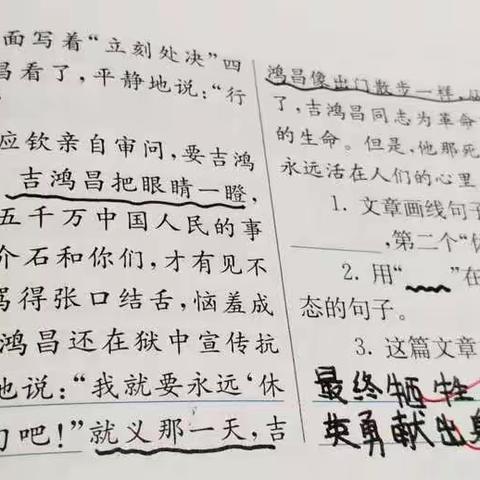 面写着“立刻处决”四
昌看了，平静地说：“行
应钦亲自审问，要吉鸿
吉鸿昌把眼睛一瞪，
五千万中国人民的事
介石和你们，才有见不
骂得张口结舌，恼羞成
鸿昌还在狱中宣传抗
地说：“我就要永远‘休
吧！”就义那一天，吉
鸿昌像出门散步一样，从
了，吉鸿昌同志为革命
的生命。但是，他那死
永远活在人们的心里
1. 文章画线句子
，第二个“休
2. 用“﹏”在
态的句子。
3. 这篇文章
最终牺牲
英勇献出身